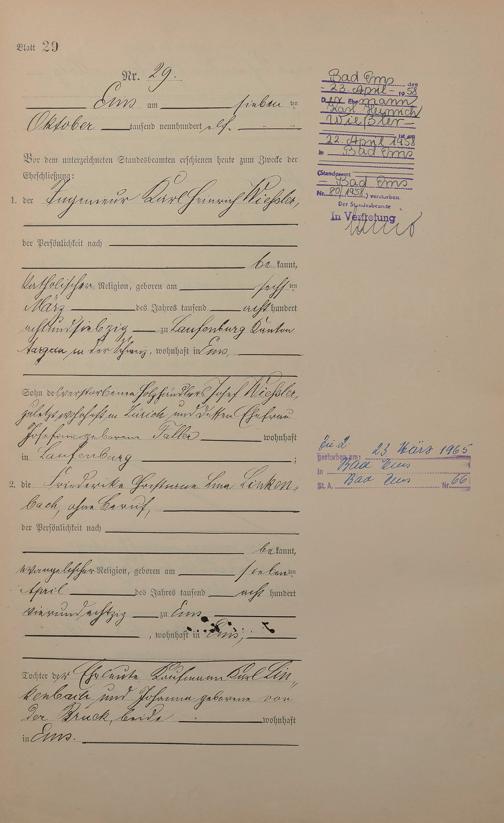 Blatt 29
Nr. 29.
Ems am sieben ten
Oktober tausend neunhundert elf.
Vor dem unterzeichneten Standesbeamten erschienen heute zum Zwecke der
Eheschließung:
1. der Ingenieur Karl Heinrich Wießler,
der Persönlichkeit nach
be kannt,
katholischer Religion, geboren am sechs ten
März des Jahres tausend acht hundert
achtundsiebzig zu Laufenburg Kanton
Aargau, in der Schweiz, wohnhaft in Ems,
Sohn des verstorbenen Holzhändlers Josef Wießler,
zuletzt wohnhaft in Zürich und dessen Ehefrau
Josefine geborene wohnhaft
in Laufenburg ;
2. die Friederike Lina Linken-
bach, ohne Beruf,
der Persönlichkeit nach
be kannt,
evangelischer Religion, geboren am sieben ten
April des Jahres tausend acht hundert
vierundachtzig zu Ems
, wohnhaft in Ems;
Tochter der Eheleute Kaufmann Karl Lin-
kenbach und Johanna geborene von
der Bruck, beide wohnhaft
in Ems.
Bad Ems den
23. April 1958
Der Ehemann
Karl Heinrich
Wießler
ist am
22. April 1958
in Bad Ems
(Standesamt
Bad Ems
Nr. 80/1958) verstorben.
Der Standesbeamte
In Vertretung
Die 2.
gestorben am: 23 März 1965
in Bad Ems
St. A. Bad Ems Nr. 66